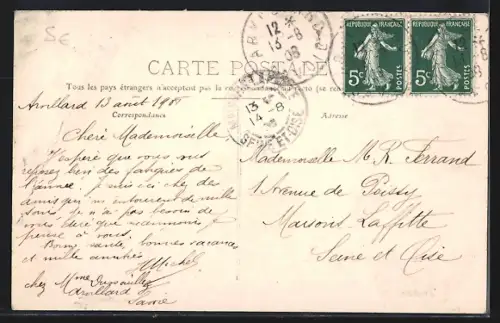 SE
12 *
13-8
08
RÉPUBLIQUE FRANÇAISE
5c POSTES
RÉPUBLIQUE FRANÇAISE
5c POSTES
CARTE POSTALE
Tous les pays étrangers n'acceptent pas la
13
14-8
SEINE-ET-OISE
Correspondance
Adresse
Arvillard 13 août 1908
Chère Mademoiselle
J'espère que vous vous
reposez bien des fatigues de
l'année. Je suis ici chez des
amis qui m'entourent de mille
soins. Je n'ai pas besoin de
vous dire que néanmoins je
pense à vous.
Bonne santé, bonnes vacances
et mille amitiés
HMichel
chez Mme
Arvillard
Savoie
Mademoiselle M. R. Ferrand
1 Avenue de Poissy
Maisons Laffitte
Seine et Oise